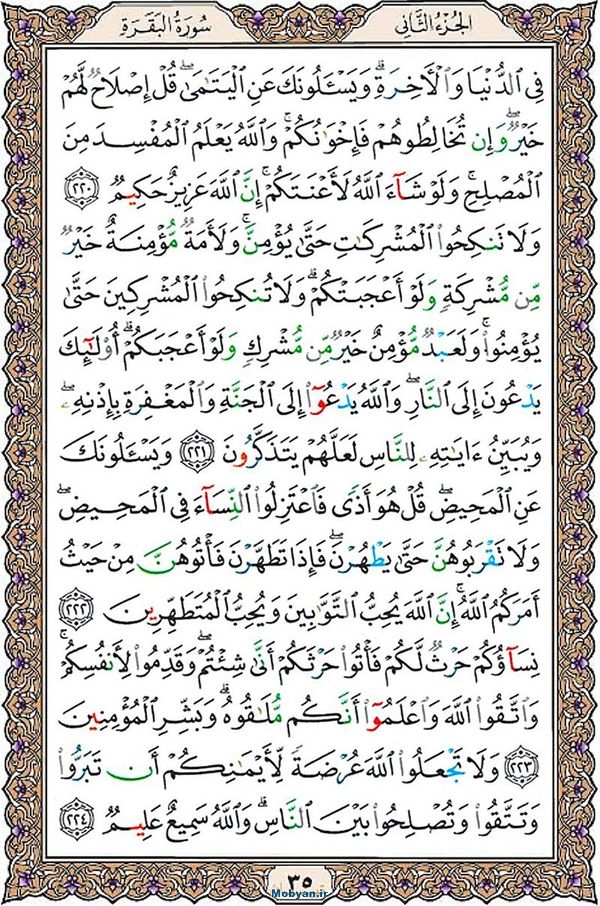 الجُزءُ الثَّانِي
سُورَةُ البَقَرَةِ
فِى ٱلدُّنْيَا وَٱلْأَخِرَةِۗ وَيَسْـَٔلُونَكَ عَنِ ٱلْيَتَٰمَىٰۖ قُلْ إِصْلَاحٌ لَّهُمْ
خَيْرٌۖ وَإِن تُخَالِطُوهُمْ فَإِخْوَٰنُكُمْۚ وَٱللَّهُ يَعْلَمُ ٱلْمُفْسِدَ مِنَ
ٱلْمُصْلِحِۚ وَلَوْ شَآءَ ٱللَّهُ لَأَعْنَتَكُمْۚ إِنَّ ٱللَّهَ عَزِيزٌ حَكِيمٌ ٢٢٠
وَلَا تَنكِحُوا۟ ٱلْمُشْرِكَٰتِ حَتَّىٰ يُؤْمِنَّۚ وَلَأَمَةٌ مُّؤْمِنَةٌ خَيْرٌ
مِّن مُّشْرِكَةٍ وَلَوْ أَعْجَبَتْكُمْۗ وَلَا تُنكِحُوا۟ ٱلْمُشْرِكِينَ حَتَّىٰ
يُؤْمِنُوا۟ۚ وَلَعَبْدٌ مُّؤْمِنٌ خَيْرٌ مِّن مُّشْرِكٍ وَلَوْ أَعْجَبَكُمْۗ أُو۟لَٰٓئِكَ
يَدْعُونَ إِلَى ٱلنَّارِۖ وَٱللَّهُ يَدْعُوٓا۟ إِلَى ٱلْجَنَّةِ وَٱلْمَغْفِرَةِ بِإِذْنِهِۦۖ
وَيُبَيِّنُ ءَايَٰتِهِۦ لِلنَّاسِ لَعَلَّهُمْ يَتَذَكَّرُونَ ٢٢١ وَيَسْـَٔلُونَكَ
عَنِ ٱلْمَحِيضِۖ قُلْ هُوَ أَذًى فَٱعْتَزِلُوا۟ ٱلنِّسَآءَ فِى ٱلْمَحِيضِۖ
وَلَا تَقْرَبُوهُنَّ حَتَّىٰ يَطْهُرْنَۖ فَإِذَا تَطَهَّرْنَ فَأْتُوهُنَّ مِنْ حَيْثُ
أَمَرَكُمُ ٱللَّهُۚ إِنَّ ٱللَّهَ يُحِبُّ ٱلتَّوَّٰبِينَ وَيُحِبُّ ٱلْمُتَطَهِّرِينَ ٢٢٢
نِسَآؤُكُمْ حَرْثٌ لَّكُمْ فَأْتُوا۟ حَرْثَكُمْ أَنَّىٰ شِئْتُمْۖ وَقَدِّمُوا۟ لِأَنفُسِكُمْۚ
وَٱتَّقُوا۟ ٱللَّهَ وَٱعْلَمُوٓا۟ أَنَّكُم مُّلَٰقُوهُۗ وَبَشِّرِ ٱلْمُؤْمِنِينَ
٢٢٣ وَلَا تَجْعَلُوا۟ ٱللَّهَ عُرْضَةً لِّأَيْمَٰنِكُمْ أَن تَبَرُّوا۟
وَتَتَّقُوا۟ وَتُصْلِحُوا۟ بَيْنَ ٱلنَّاسِۗ وَٱللَّهُ سَمِيعٌ عَلِيمٌ ٢٢٤
٣٥
Mobyan.ir